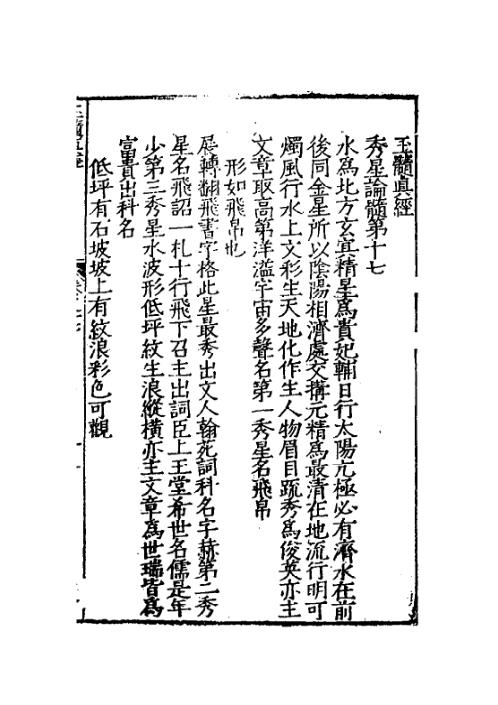 玉髓真經
秀星論髓第十七
水爲北方玄宜精星爲貴妃輔日行太陽亢極必有濟水在前
後同金星所以陰陽相濟處交搆元精爲最清在地流行明可
燭風行水上文彩生天地化作生人物眉目踈秀爲俊英亦主
文章取高第洋溢宇宙多聲名第一秀星名飛帛
形如飛帛也
展轉翻飛書字格此星最秀出文人翰苑詞科名字赫第二秀
星名飛詔一札十行飛下召主出詞臣上玉堂希世名儒是年
少第三秀星水波形低坪紋生浪縱橫亦主文章爲世瑞皆爲
富貴出科名
低坪有石坡坡上有紋浪彩色可觀